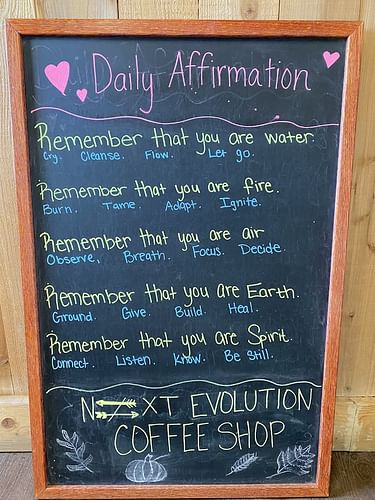 Daily Affirmation
Remember that you are water.
Cry. Cleanse. Flow. Let go.
Remember that you are fire.
Burn. Tame. Adapt. Ignite.
Remember that you are air
Observe. Breath. Focus. Decide.
Remember that you are Earth.
Ground. Give. Build. Heal.
Remember that you are Spirit.
Connect. Listen. Know. Be Still.
NEXT EVOLUTION
COFFEE SHOP